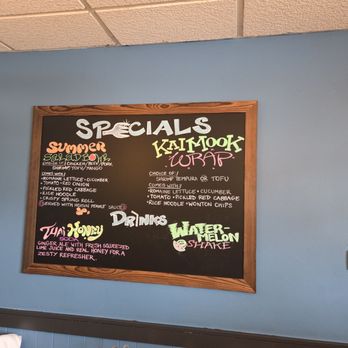 SPECIALS
SUMMER
SALAD BOWL
CHOICE OF / CHICKEN / BEEF / PORK
SHRIMP / TOFU / MANGO
COMES WITH
• ROMAINE LETTUCE • CUCUMBER
• TOMATO • RED ONION
• PICKLED RED CABBAGE
• RICE NOODLE
• CRISPY SPRING ROLL
SERVED WITH HOISIN PEANUT SAUCE
KAIMOOK
WRAP
CHOICE OF /
SHRIMP TEMPURA OR TOFU
COMES WITH /
• ROMAINE LETTUCE • CUCUMBER
• TOMATO • PICKLED RED CABBAGE
• RICE NOODLE • WONTON CHIPS
DRINKS
THAI HONEY
GINGER ALE WITH FRESH SQUEEZED
LIME JUICE AND REAL HONEY FOR A
ZESTY REFRESHER.
WATER-
MELON
SHAKE